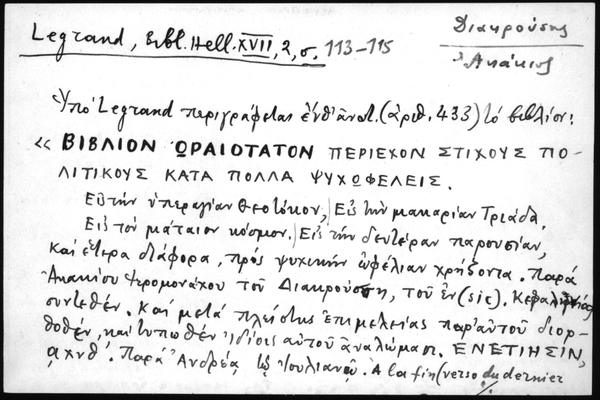 Legrand, Bibl. Hell. XVII, 2, σ. 113-115
Διακρούσης
Ἀκάκιος
Ὑπὸ Legrand περιγράφεται ἐνθ' ἀνωτ. (ἀριθ. 433) τὸ βιβλίον:
«ΒΙΒΛΙΟΝ ΩΡΑΙΟΤΑΤΟΝ ΠΕΡΙΕΧΟΝ ΣΤΙΧΟΥΣ ΠΟ-
ΛΙΤΙΚΟΥΣ ΚΑΤΑ ΠΟΛΛΑ ΨΥΧΩΦΕΛΕΙΣ.
Εἰς τὴν ὑπεραγίαν Θεοτόκον, | Εἰς τὴν μακαρίαν Τριάδα,
Εἰς τὸν μάταιον κόσμον. | Εἰς τὴν δευτέραν παρουσίαν,
καὶ ἕτερα διάφορα, πρὸς ψυχικὴν ὠφέλιαν χρήζοντα. Παρὰ
Ἀκακίου Ἱερομονάχου τοῦ Διακρούση, τοῦ ἐν (sic). Κεφαληνίας
συντεθέν. Καὶ μετὰ πλείστης ἐπιμελείας παρ' αὐτοῦ διορ-
θοθέν, καὶ τυπωθὲν ἰδίοις αὐτοῦ ἀναλώμασι. ΕΝΕΤΙΗΣΙΝ,
αχνθ'. Παρὰ Ἀνδρέᾳ τῷ Ἰουλιανῷ. A la fin (verso du dernier